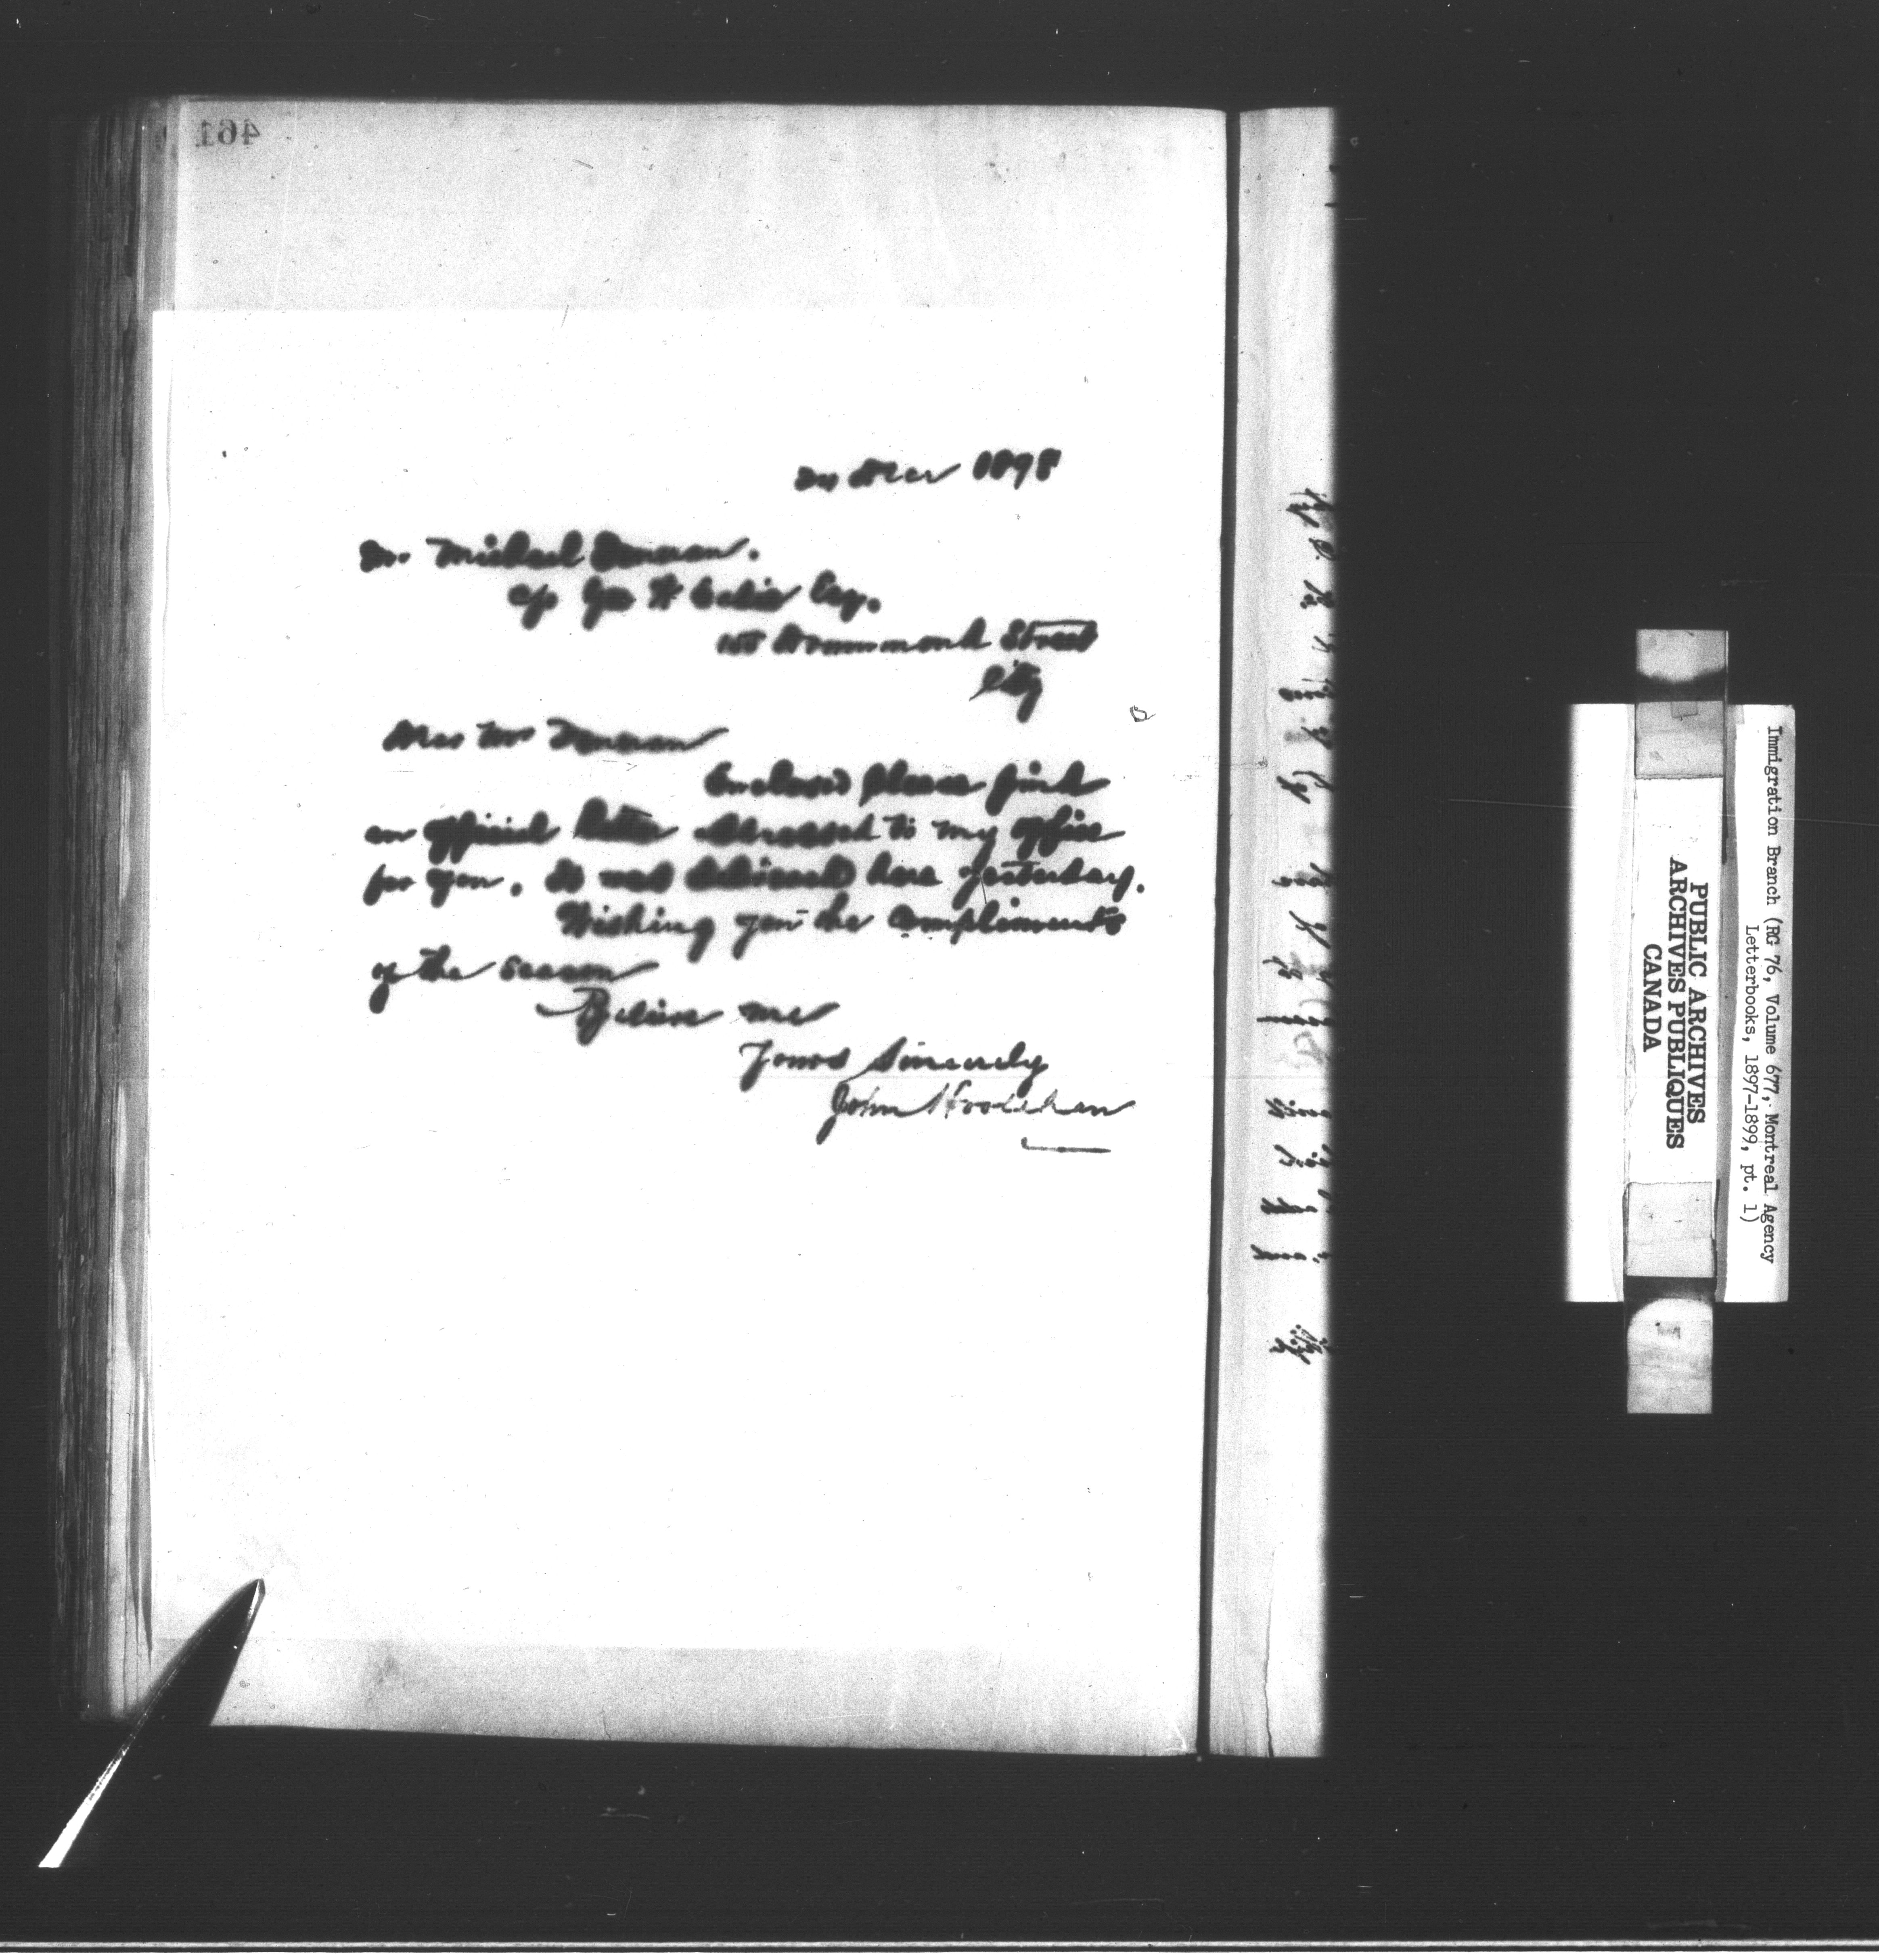 461
24 Dec 1898
Mr. Michael
c/o Geo Esq.
Drummond Street
City
Dear Mr
Enclosed please find
an official letter addressed to my office
for you. It was delivered here yesterday.
Wishing you the compliments
of the season
Believe me
Yours Sincerely
John Hoolahan
Immigration Branch (RG 76, Volume 677, Montreal Agency
Letterbooks, 1897-1899, pt. 1)
PUBLIC ARCHIVES
ARCHIVES PUBLIQUES
CANADA